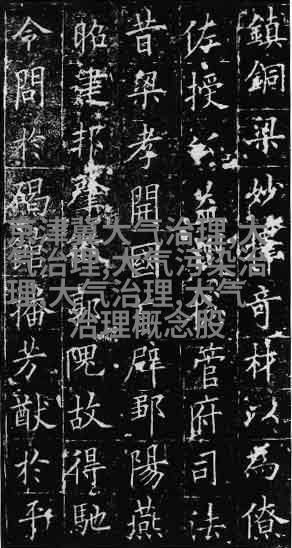 鎮銅梁妙擇奇材以為僚
佐授益管府司法
昔梁孝開國辟鄒陽燕
昭建邦肇郭隗故得馳
令問於碣館播芳猷於平
京津冀大气治理,大
气治理,大气污染治
理,大气治理,大气
治理概念股